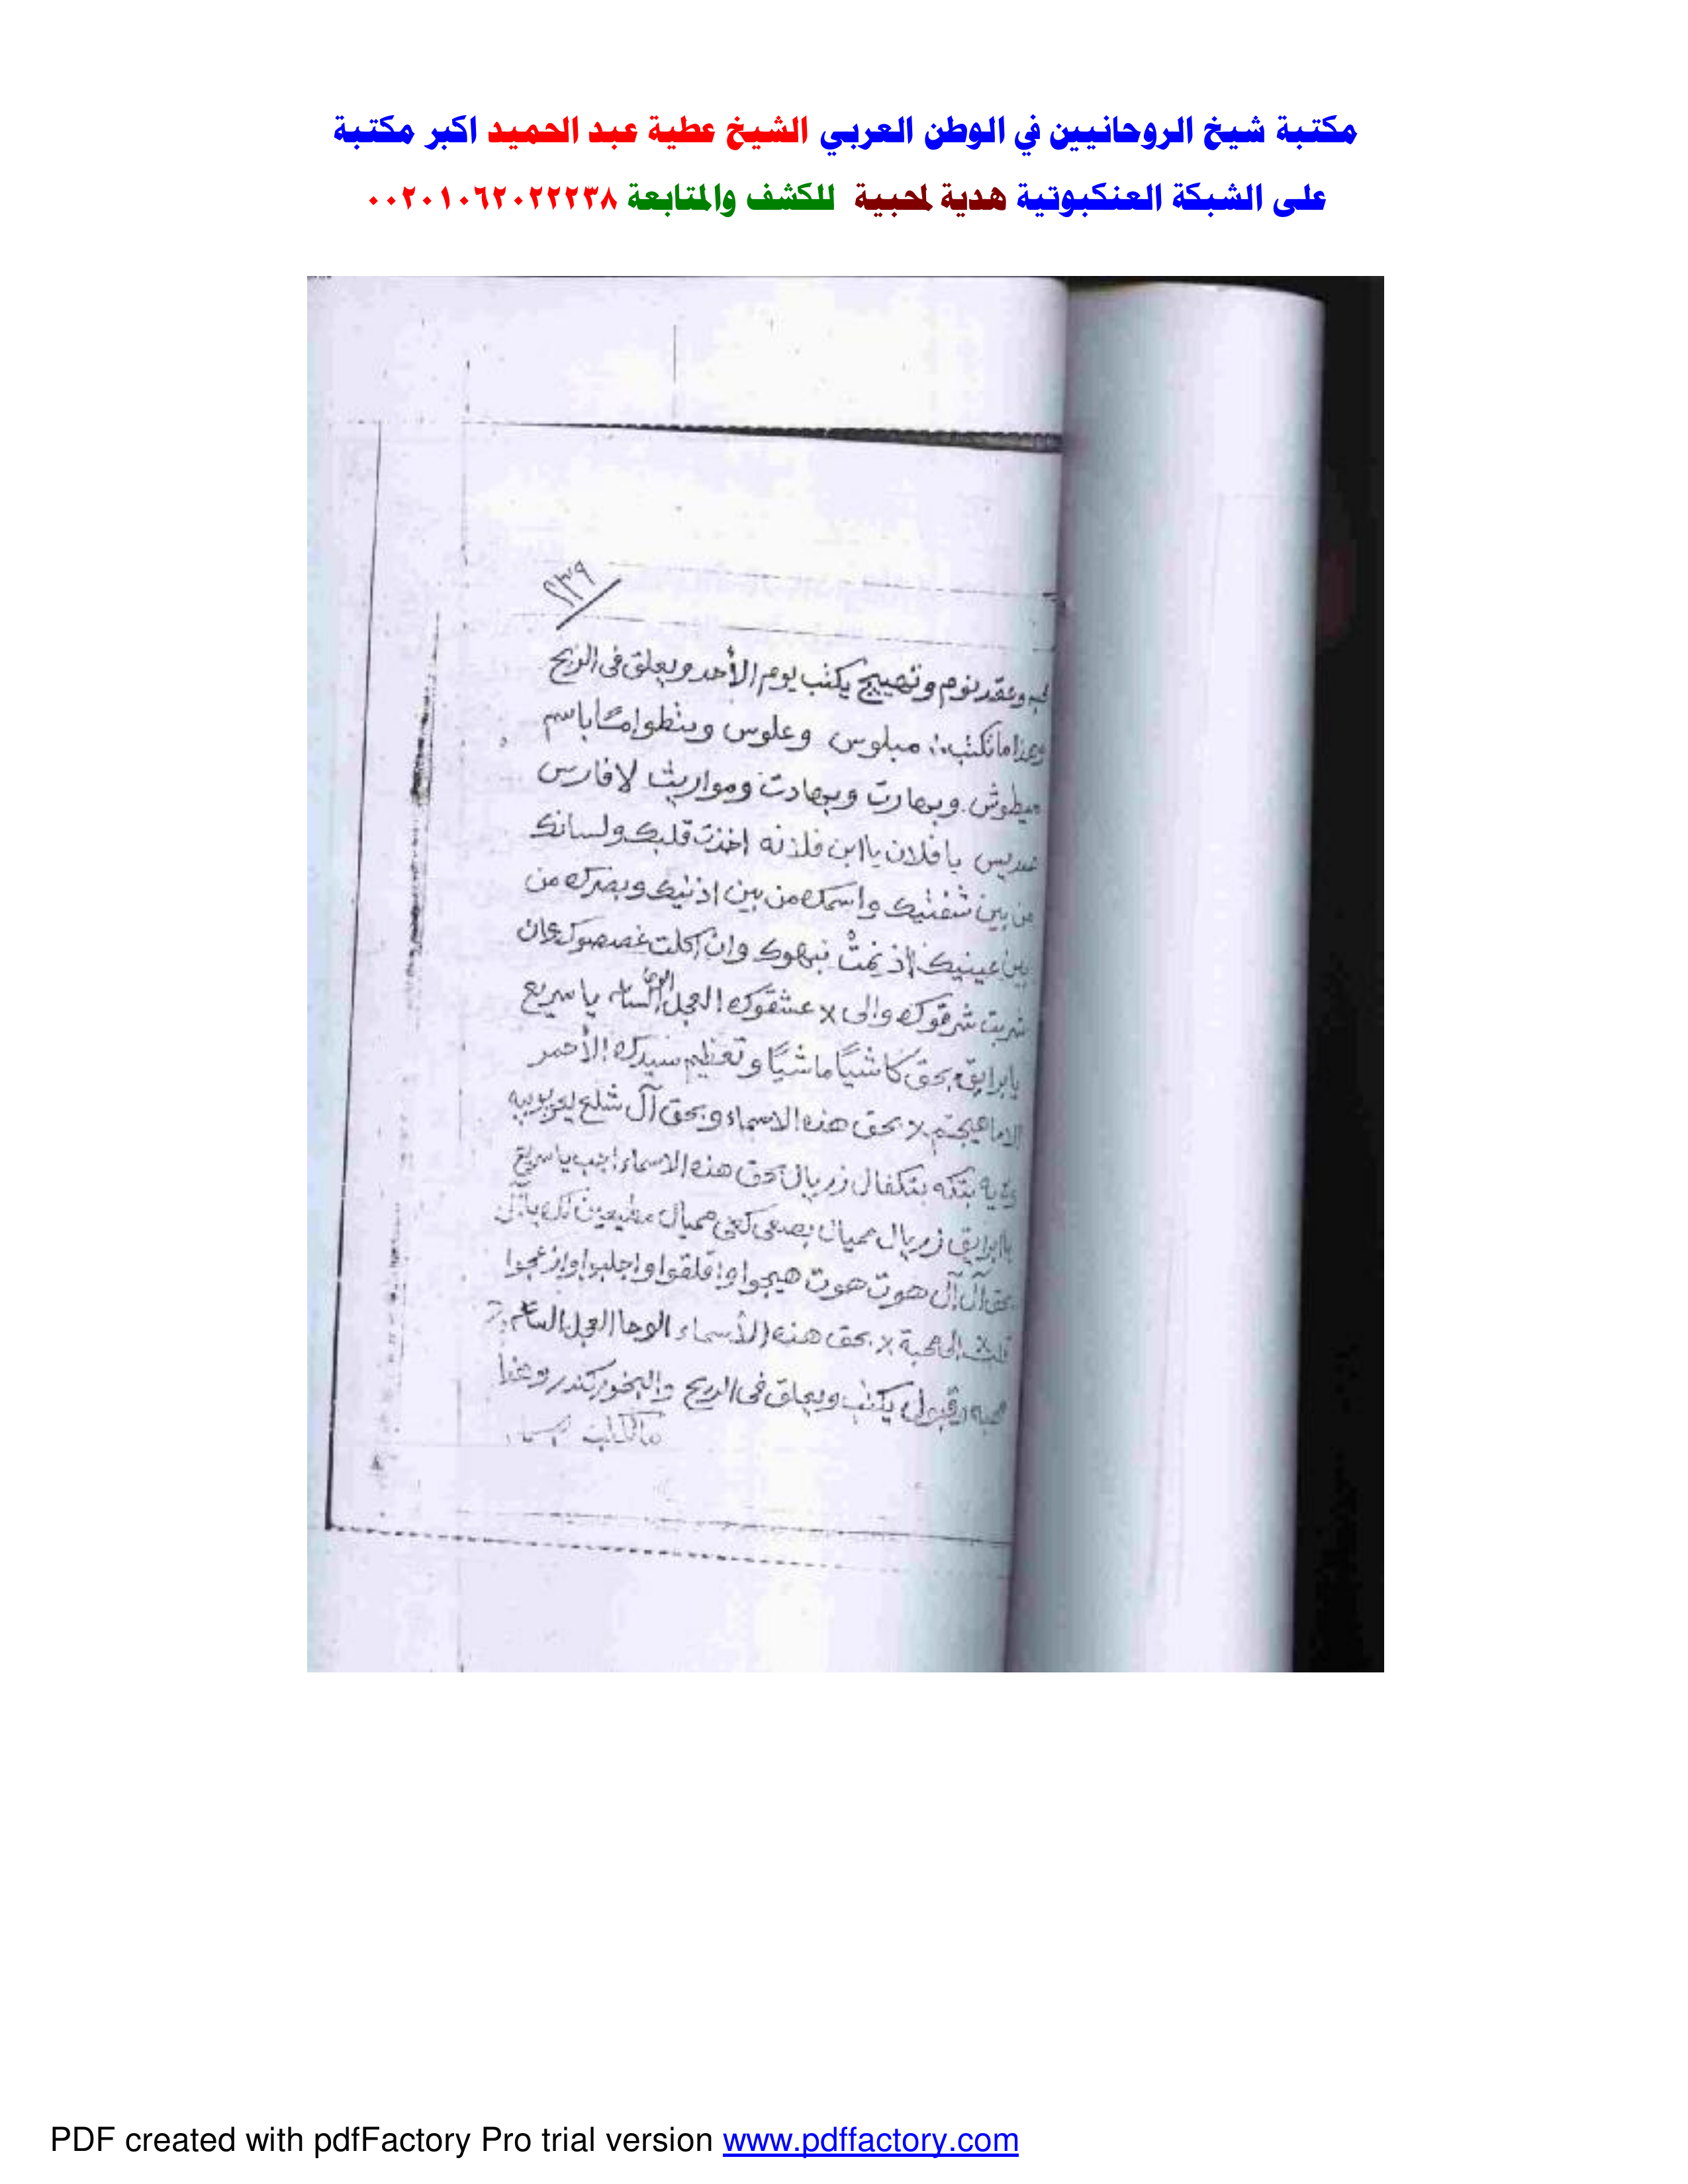 مكتبة شيخ الروحانيين في الوطن العربي الشيخ عطية عبد الحميد اكبر مكتبة
على الشبكة العنكبوتية هدية لمحبية للكشف والمتابعة ٠٠٢٠١٠٦٢٠٢٢٢٣٨
٢٣٩
وعقد نوم وتهييج يكتب يوم الأحد ويعلق فى الريح
وهذا ما تكتب: مبلوس وعلوس
ميطوش وبهارت وبهادت ومواريث لافارس
يا فلان يا ابن فلانه اخذت قلبك ولسانك
من بين شفتيك واسمك من بين اذنيك وبصرك من
بين عينيك اذ نمت نبهوك وان اكلت غصصوك وان
شربت شرقوك والى لا عشقوك العجل الساعه يا سريع
يا برايق بحق كاشيًا ماشيًا وتعظيم سيدك الأحمر
الا ما هيجتم لا بحق هذه الاسماء وبحق آل شلع
بتكه بتكفال زريال بحق هذه الاسماء اجب يا سريع
يا برايق زريال مطيعين
بحق آل آل هوت هوت هيجوا واقلقوا واجلبوا وازعجوا
الى محبة لا بحق هذه الأسماء الوحا العجل الساعه
محبه وقبول يكتب ويعلق فى الريح والبخور كندر
PDF created with pdfFactory Pro trial version www.pdffactory.com